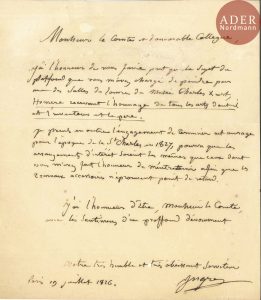 ADER
Nordmann
Monsieur le Comte et honorable Collegue
j'ai l'honneur de vous faire part que le Sujet du
plaffond que vous m'avez chargé de peindre par
une des Salles du Louvre du Musée Charles X est
Homère recevant l'hommage de tous les arts dont il
est l'inventeur et le père.
je prends en outre l'engagement de terminer cet ouvrage
pour l'époque de la St Charles en 1827, pourvu que les
arrangements d'intérêt soient les mêmes que ceux dont
vous m'avez fait l'honneur de m'entretenir afin que les
travaux n'éprouvent point de retard.
j'ai l'honneur d'être Monsieur le Comte
avec les Sentimens d'un proffond dévouement
votre très humble et très obéissant Serviteur
Ingres
Paris 19 juillet 1826.